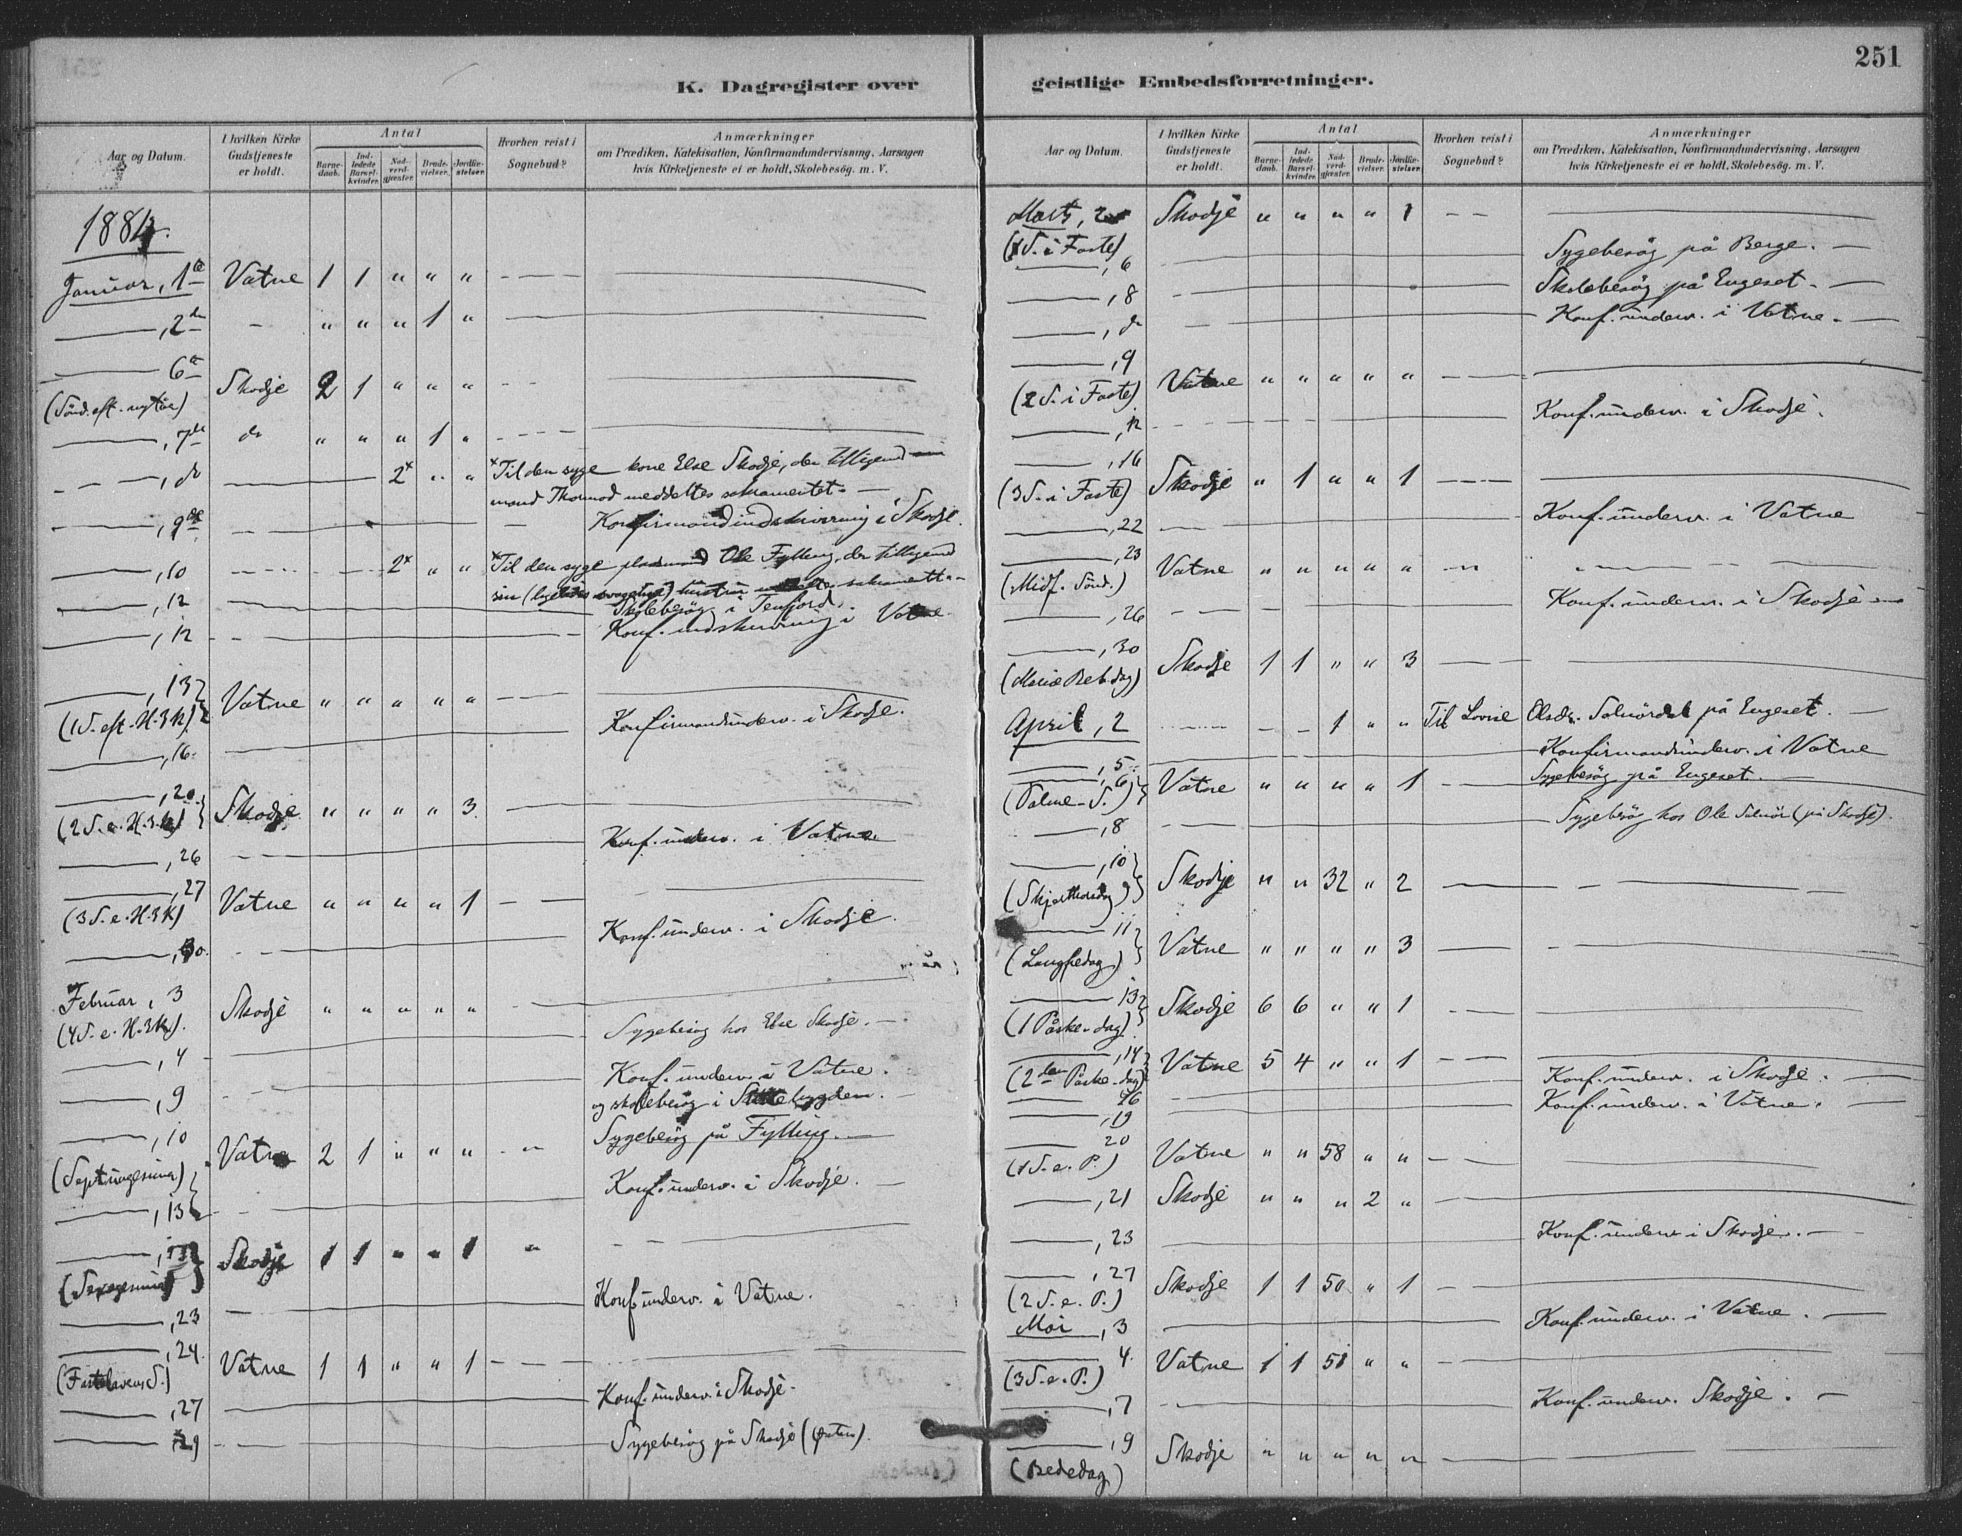 251
K. Dagregister over
geistlige Embedsforretninger.
Aar og Datum.
I hvilken Kirke Gudstjeneste er holdt.
Antal
Barnedaab.
Indledede Barselkvinder.
Nadverdgjæster.
Brudevielser.
Jordfæstelser.
Hvorhen reist i Sognebud?
Anmærkninger
om Prædiken, Katekisation, Konfirmandundervisning, Aarsagen
hvis Kirketjeneste ei er holdt, Skolebesög. m. V.
1884.
Januar, 1ste Vatne 1 1 " " "
, 2den - " " " 1 "
6te
(Sönd. eft. nytår) Skodje 2 1 " " "
, 7de do " " " 1 "
, do 2x " " xTil den syge kone Else Skodje, der tilligemed
mand Thormod meddeltes sakramentet.
, 9de Konfirmandindskrivning i Skodje.
, 10 2x " " xTil den syge pladsmand Ole Fylling, der tilligemed
sin hustru sakramentet
, 12 Skolebesög i Tenfjord.
, 12 Konf. indskrivning i Vatne
, 13
(1 S. eft. H. 3 K.) Vatne " " " " "
, 16. Konfirmandunderv. i Skodje.
, 20.
(2 S. e. H. 3 K.) Skodje " " " " 3.
, 26 Konf. underv. i Vatne
, 27
(3 S. e. H. 3 K) Vatne " " " " 1
, 30. Konf. underv. i Skodje.
Februar, 3
(4 S. e. H. 3 K.). Skodje " " " " "
, 4 Sygebesög hos Else Skodje.
, 9 Konf. underv. i Vatne.
og skolebesög i
, 10 Sygebesög på Fylling.
(Septuagesima) Vatne 2 1 " " "
, 13 Konf. underv. i Skodje.
, 17
(Sexagesima) Skodje 1 1 " " 1 "
, 23 Konf underv. i Vatne.
, 24.
(Fastelavens S.) Vatne 1 1 " " 1
, 27 Konf. underv. i Skodje.
29 Sygebesög på Skodje
Aar og Datum.
I hvilken Kirke Gudstjeneste er holdt.
Antal
Barnedaab.
Indledede Barselkvinder.
Nadverdgjæster.
Brudevielser.
Jordfæstelser.
Hvorhen reist i Sognebud?
Anmærkninger
om Prædiken, Katekisation, Konfirmandundervisning, Aarsagen
hvis Kirketjeneste ei er holdt, Skolebesög. m. V.
Marts, 2 Skodje " " " " 1
(1 S. i Faste)
, 6 Sygebesög på Berge.
, 8 Skolebesög på Engeset.
, do Konf. underv. i Vatne.
, 9
(2 S. i Faste). Vatne " " " " "
, 12 Konf. underv. i Skodje.
, 16
(3 S. i Faste) Skodje " 1 " " 1
, 22 Konf. underv. i Vatne
, 23
(Midf. Sönd.) Vatne " " " " "
, 26 Konf. underv. i Skodje
, 30
(Mariæ Beb. dag) Skodje 1 1 " " 3
April, 2 1 " " Til Lovise Olsdr. Solnördal på Engeset.
, 5. Konfirmandunderv. i Vatne
, 6 Sygebesög på Engeset.
(Palme-S.) Vatne " " " " 1
, 8 Sygebesög hos Ole Solnör (på Skodje).
, 10
(Skjærthorsdag) Skodje " " 32 " 2
11
(Langfredag) Vatne " " " " 3
13
(1 Påske-dag) Skodje 6 6 " " 1
, 14
(2den Påske-dag) Vatne 5 4 " " 1
16 Konf. underv. i Skodje.
, 19 Konf. underv. i Vatne.
20
(1 S. e. P.) Vatne " " 58 " "
, 21 Skodje " " " 2 "
, 23 Konf. underv i Skodje.
, 27
(2 S. e. P.) Skodje 1 1 50 " 1
Mai, 3 Konf. underv. i Vatne.
4.
(3 S. e. P.) Vatne 1 1 " "
, 7 Konf. underv. Skodje.
, 9
(Bededag) Skodje " " " " "